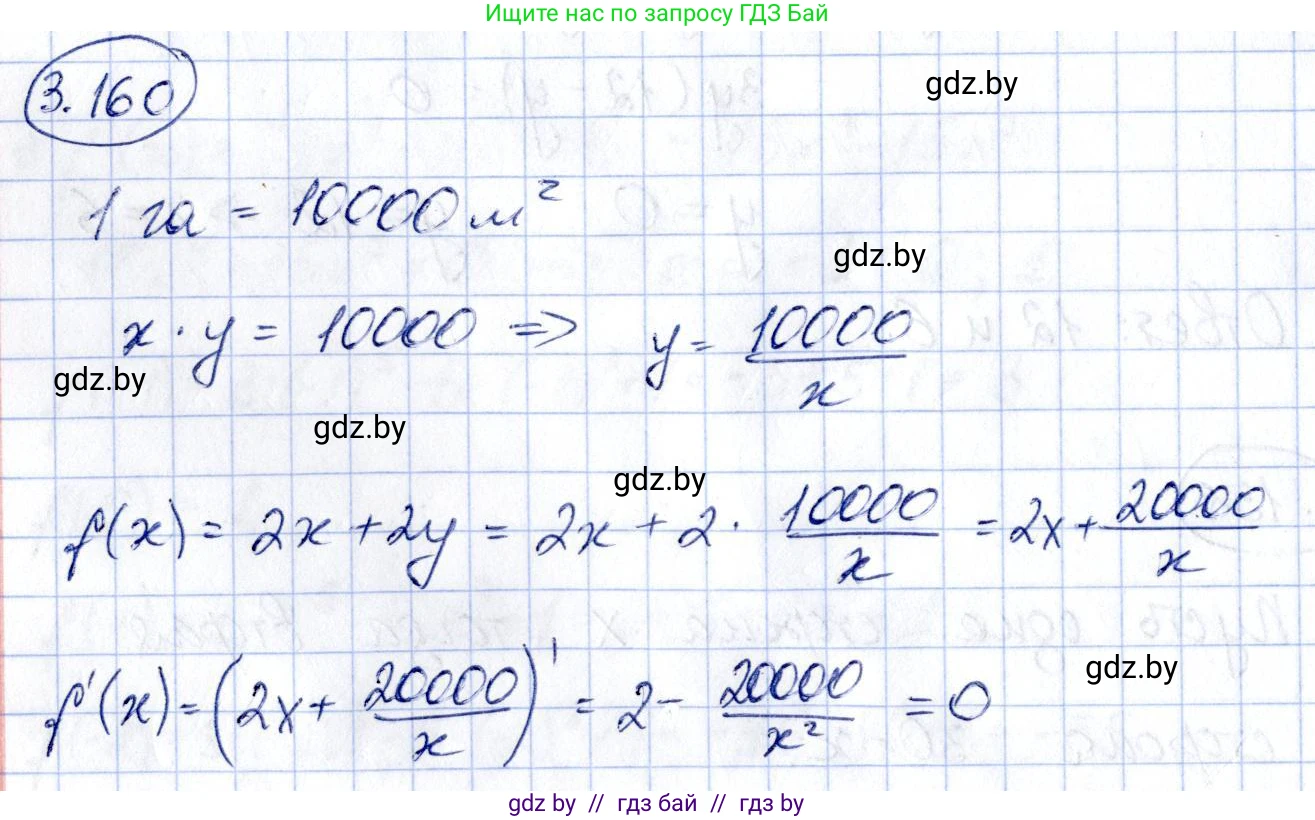 Ищите нас по запросу ГДЗ Бай
3.160
gdz.by
1 га = 10000 м²
gdz.by
x · y = 10000 => y = 10000/x
gdz.by
gdz.by
gdz.by
f(x) = 2x + 2y = 2x + 2 · 10000/x = 2x + 20000/x
gdz.by
f'(x) = (2x + 20000/x)' = 2 - 20000/x² = 0
gdz by // гдз бай // гдз by